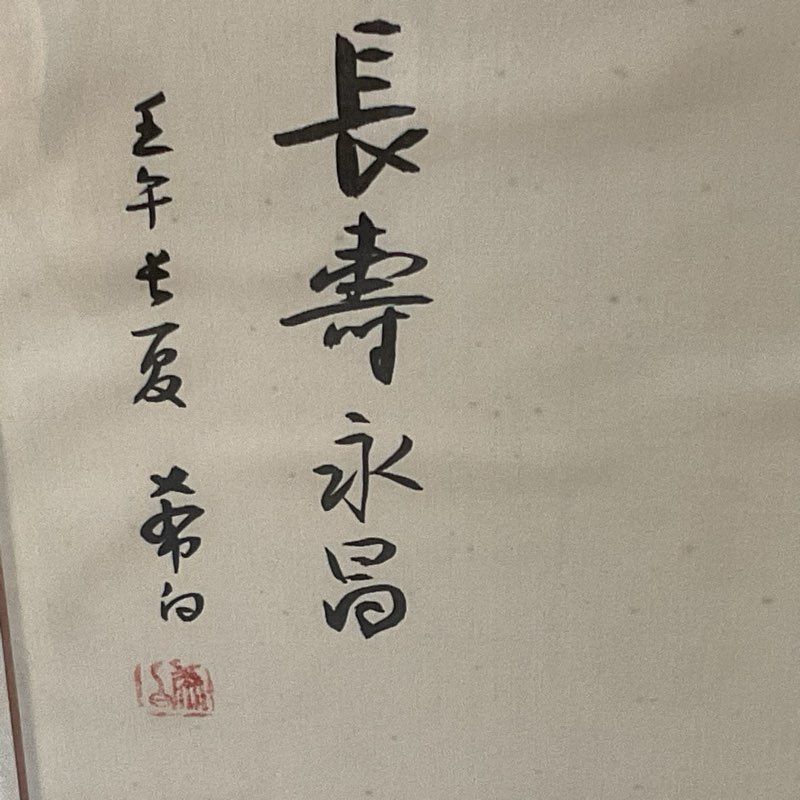 長壽永昌
壬午长夏 希白